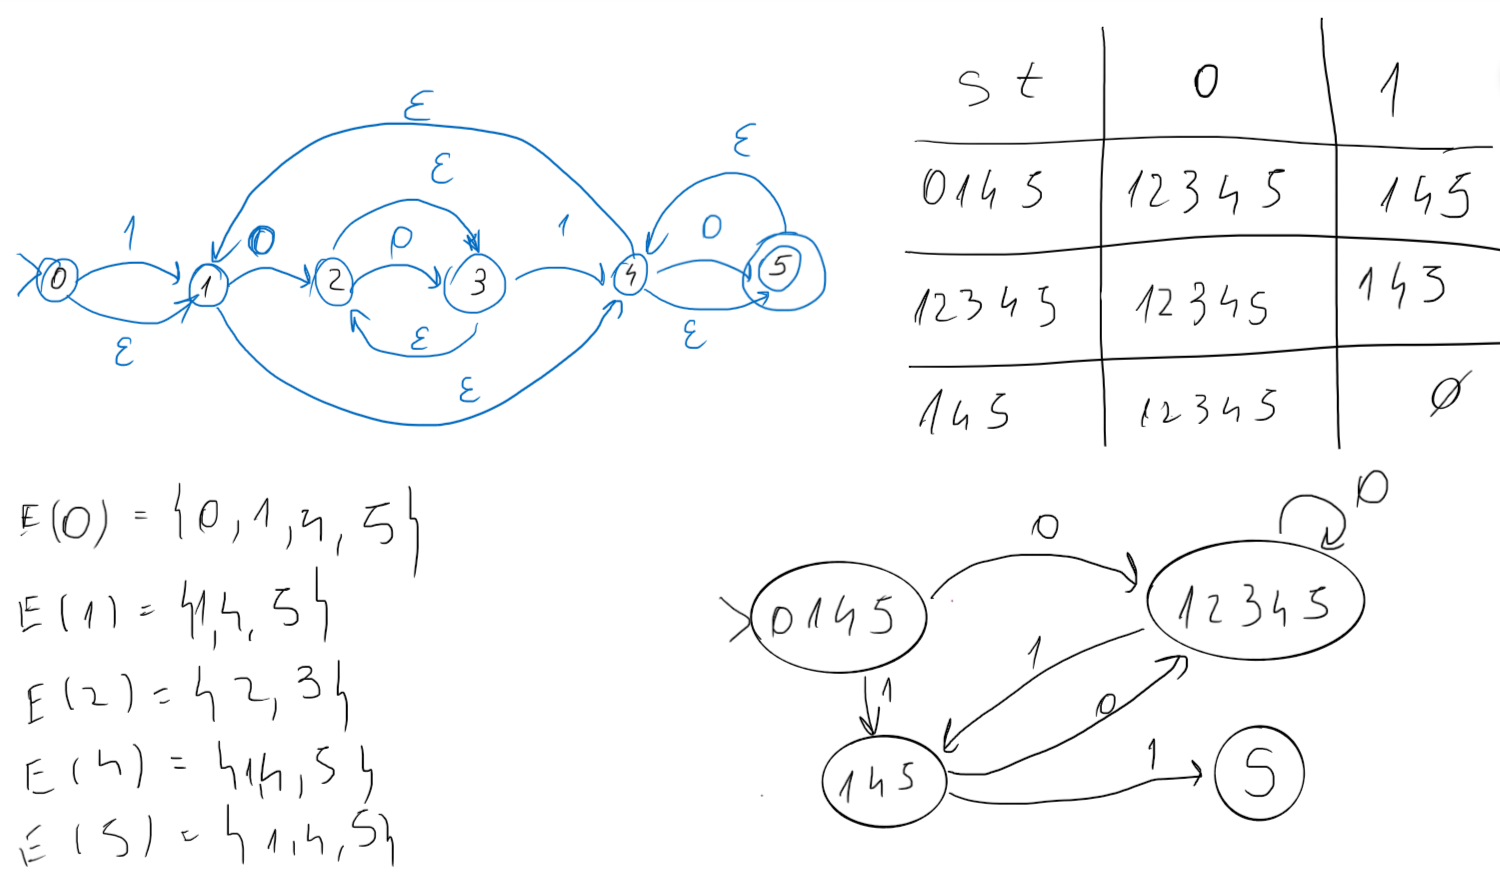 ε
ε
ε
1
0
0
1
0
0
1
2
3
4
5
ε
ε
ε
ε
st 0 1
0145 12345 145
12345 12345 145
145 12345 ∅
E(0) = {0,1,4,5}
E(1) = {1,4,5}
E(2) = {2,3}
E(4) = {1,4,5}
E(5) = {1,4,5}
0
0
0145
12345
1
1
0
145
1
S